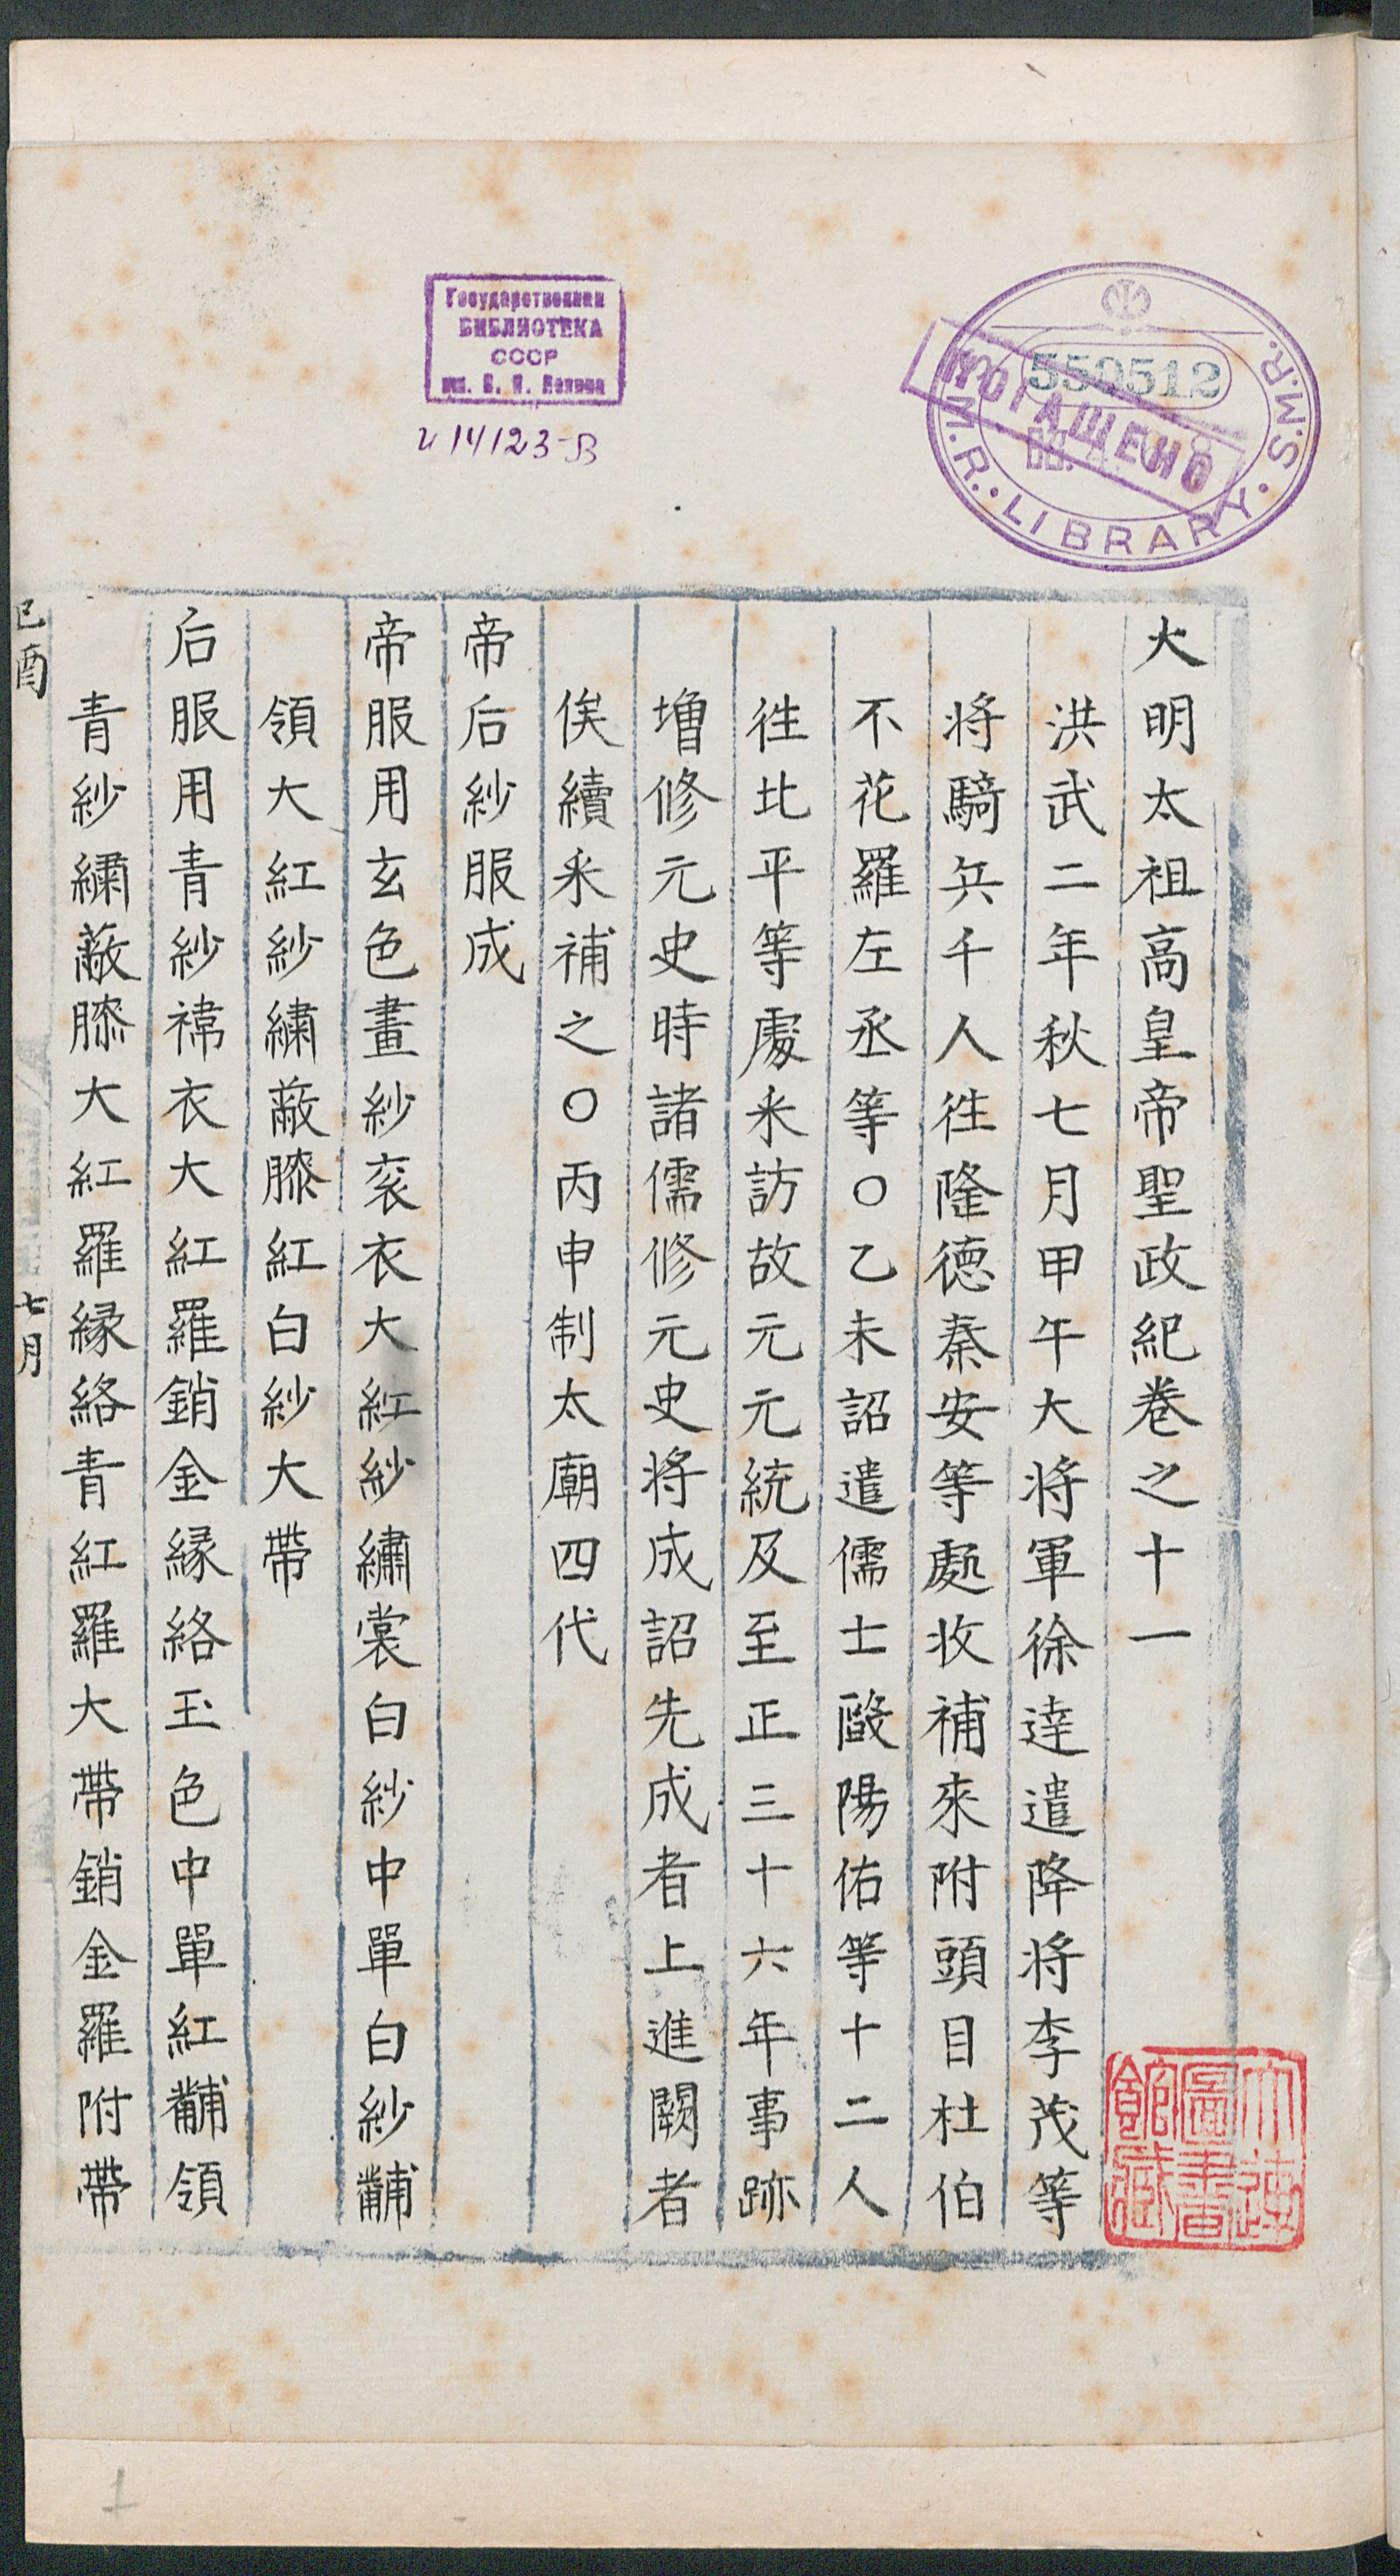 大明太祖高皇帝聖政紀卷之十一
洪武二年秋七月甲午大将軍徐達遣降将李茂等
将騎兵千人徃隆德秦安等處收補來附頭目杜伯
不花羅左丞等○乙未詔遣儒士歐陽佑等十二人
徃北平等處采訪故元元統及至正三十六年事跡
增修元史時諸儒修元史将成詔先成者上進闕者
俟續采補之○丙申制太廟四代
帝后紗服成
帝服用玄色畫紗袞衣大紅紗繡裳白紗中單白紗黼
領大紅紗繡蔽膝紅白紗大帶
后服用青紗褘衣大紅羅銷金緣絡玉色中單紅黼領
青紗繡蔽膝大紅羅緣絡青紅羅大帶銷金羅附帶
己酉
七月
Государственная
БИБЛИОТЕКА
СССР
им. В. И. Ленина
И 14123-В
550512
ПОГАШЕНО
M.R. · LIBRARY · S.M.R.
大連
圖書
館藏
1